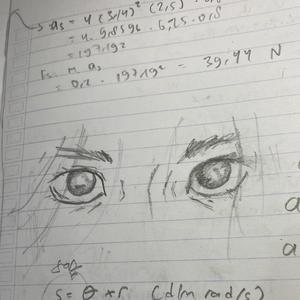 → as = 4 (3,14)² (2,5)² . 0,8
= 4 . 9,8596 . 6,25 . 0,8
= 197,192
Fs = m as
= 0,2 . 197,19² = 39,44 N
a
a
s = θ * r (d/m rad/s)